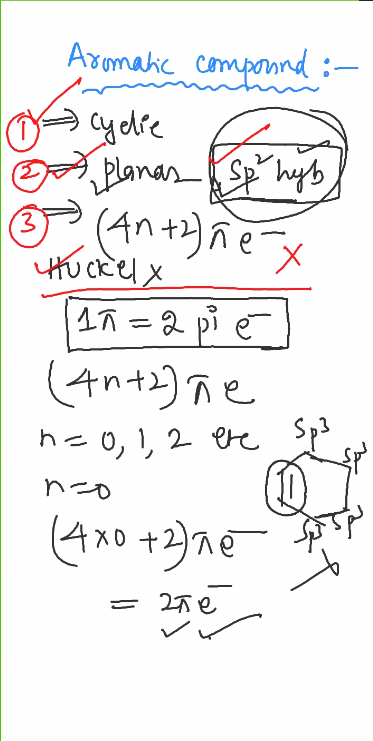 Aromatic compound :-
1 ⇒ cyclic
2 ⇒ planar sp² hyb
3 ⇒ (4n+2) π e⁻
Huckel x X
1π = 2 pi e⁻
(4n+2) π e
n = 0, 1, 2 etc
n=0
(4×0 +2) π e⁻
= 2π e⁻
Sp³ Sp³
Sp³ Sp³